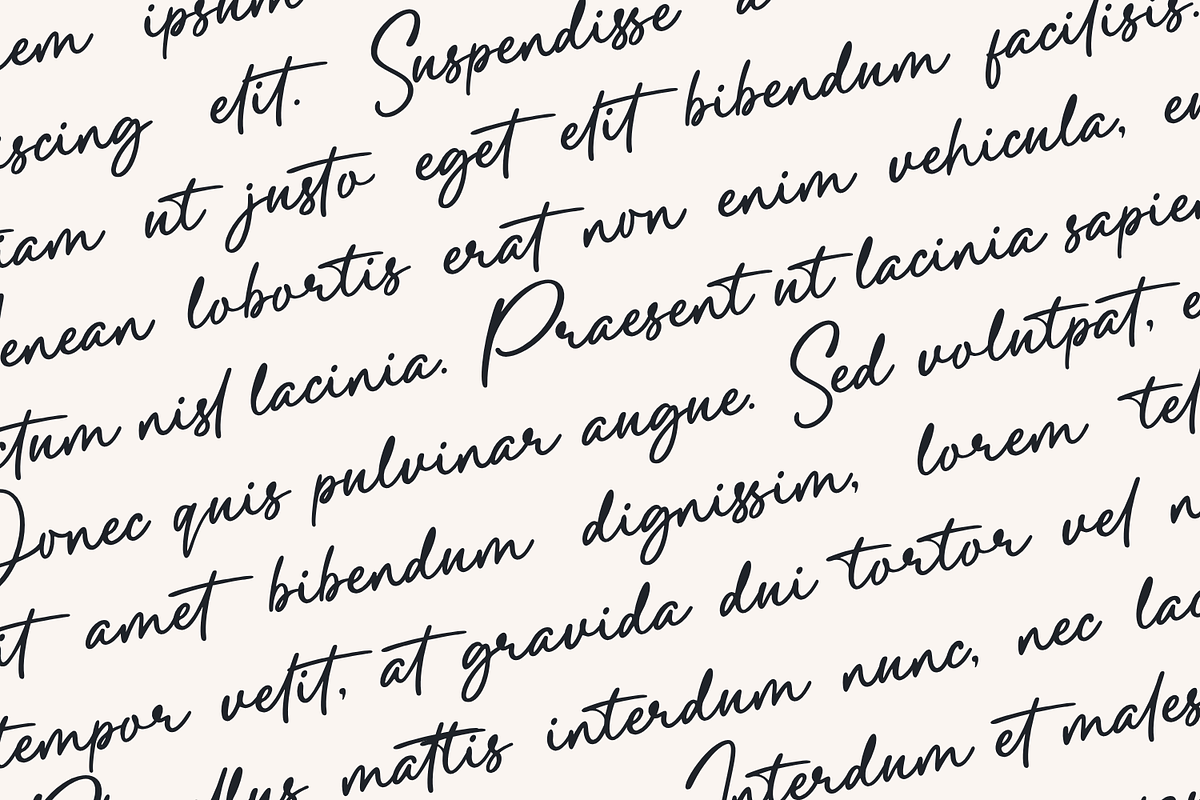 em ipsum
iscing elit. Suspendisse a
iam ut justo eget elit bibendum facilisis.
enean lobortis erat non enim vehicula, eu
ctum nisl lacinia. Praesent ut lacinia sapien
Donec quis pulvinar augue. Sed volutpat, e
it amet bibendum dignissim, lorem tel
tempor velit, at gravida dui tortor vel n
mattis interdum nunc, nec lac
Interdum et males